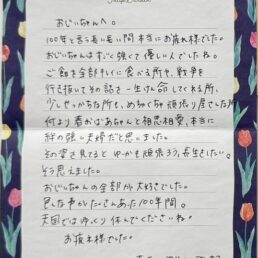 おじいちゃんへ。
100年と言う長い長い間本当にお疲れ様でした。
おじいちゃんはすごく強くて優しい人でしたね。
ご飯を全部キレイに食べる所も、戦争を
行き抜いてその話を一生けん命してくれる所、
少しせっかちな所も、めちゃくちゃ頑張り屋でした所
何より春かばあちゃんと相思相愛、本当に
絆の強い夫婦だと思いました。
その姿を見てると ゆーかも頑張ろう、長生きしたい。
そう思えました。
おじいちゃんの全部が大好きでした。
色んな事がたくさんあった100年間。
天国ではゆっくり休んでくださいね。
お疲れ様でした。